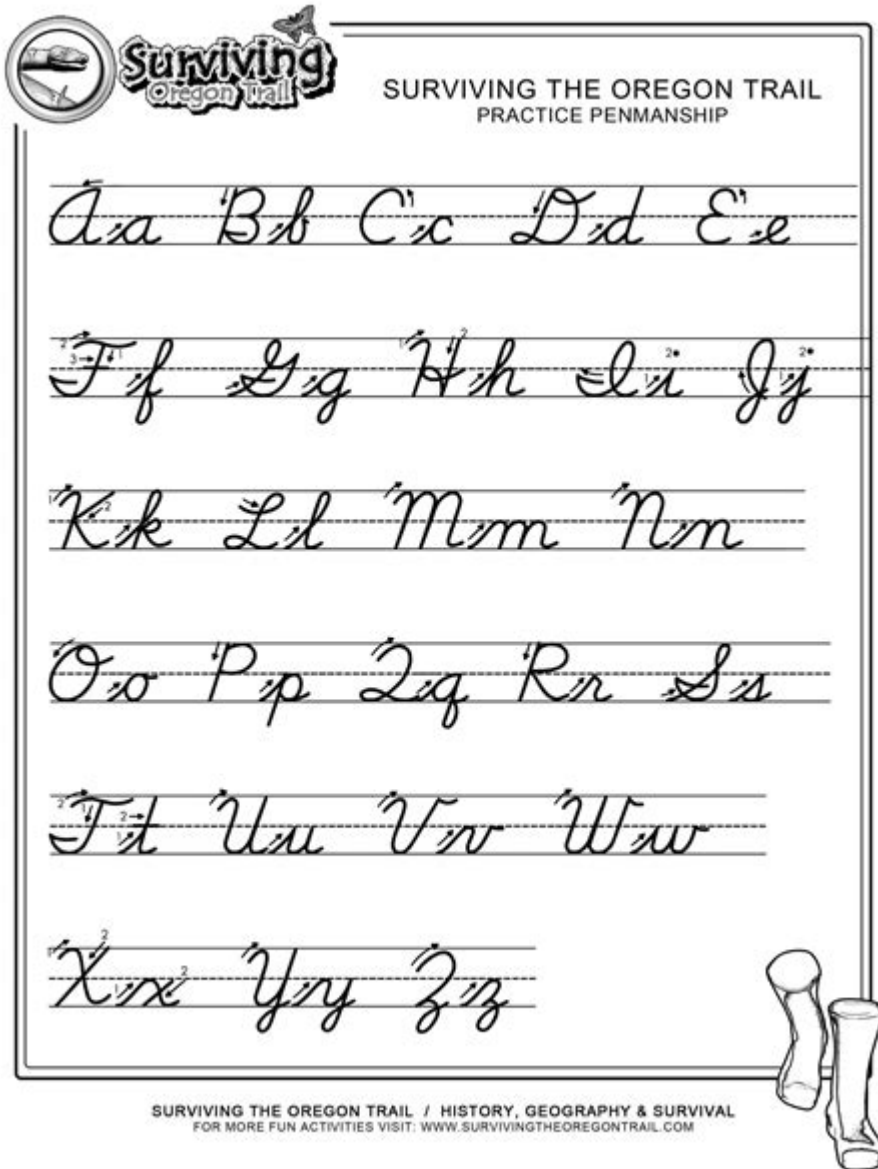 Surviving
Oregon Trail
SURVIVING THE OREGON TRAIL
PRACTICE PENMANSHIP
Aa Bb Cc Dd Ee
Ff Gg Hh Ii Jj
Kk Ll Mm Nn
Oo Pp Qq Rr Ss
Tt Uu Vv Ww
Xx Yy Zz
SURVIVING THE OREGON TRAIL / HISTORY, GEOGRAPHY & SURVIVAL
FOR MORE FUN ACTIVITIES VISIT: WWW.SURVIVINGTHEOREGONTRAIL.COM